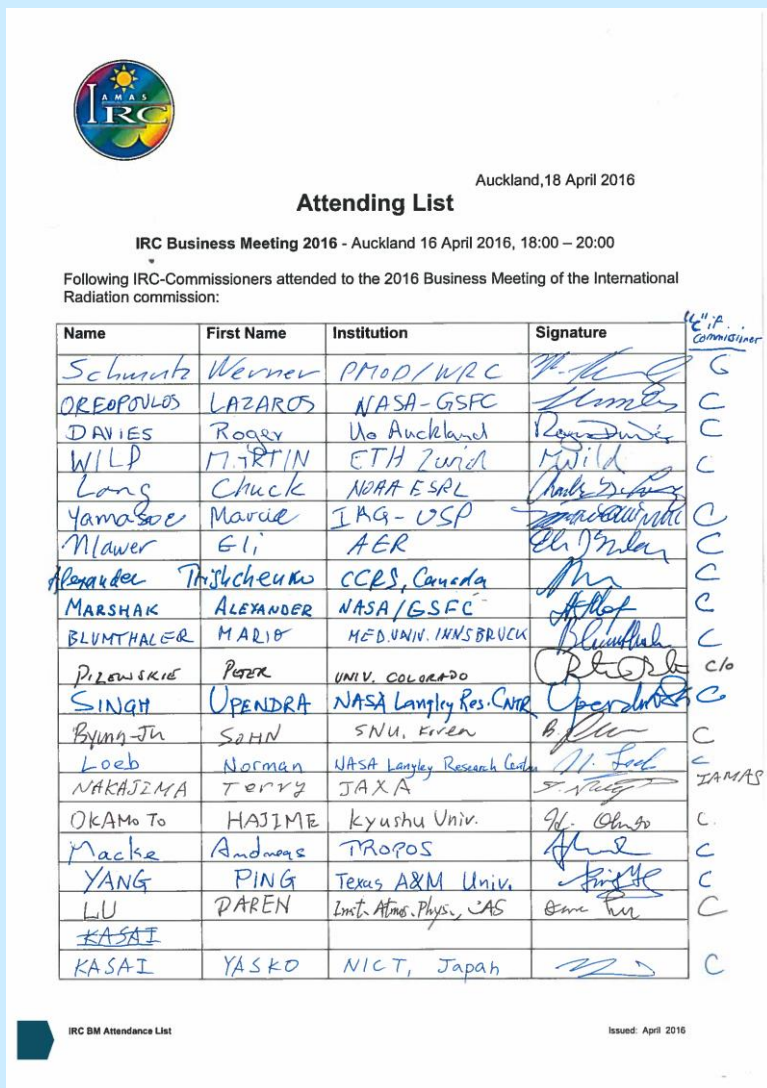 IAMAS
IRC
Auckland,18 April 2016
Attending List
IRC Business Meeting 2016 - Auckland 16 April 2016, 18:00 – 20:00
Following IRC-Commissioners attended to the 2016 Business Meeting of the International
Radiation commission:
"C" if..
commissioner
Name First Name Institution Signature
Schmutz Werner PMOD/WRC
OREOPOULOS LAZAROS NASA-GSFC C
DAVIES Roger Uo Auckland C
WILD MARTIN ETH Zurich MWild C
Long Chuck NOAA ESRL
Yamasoe Marcia IAG-USP C
Mlawer Eli AER C
Alexander Trishchenko CCRS, Canada C
MARSHAK ALEXANDER NASA/GSFC C
BLUMTHALER MARIO MED.UNIV. INNSBRUCK Blumthaler C
PILEWSKIE PETER UNIV. COLORADO c/o
SINGH UPENDRA NASA Langley Res. CNTR C
Byung-Ju SOHN SNU, Korea C
Loeb Norman NASA Langley Research Center N. Loeb C
NAKAJIMA Terry JAXA IAMAS
OKAMOTO HAJIME Kyushu Univ. C.
Macke Andreas TROPOS C
YANG PING Texas A&M Univ. C
LU DAREN Inst. Atmos. Phys., CAS C
KASAI
KASAI YASKO NICT, Japan C
IRC BM Attendance List Issued: April 2016